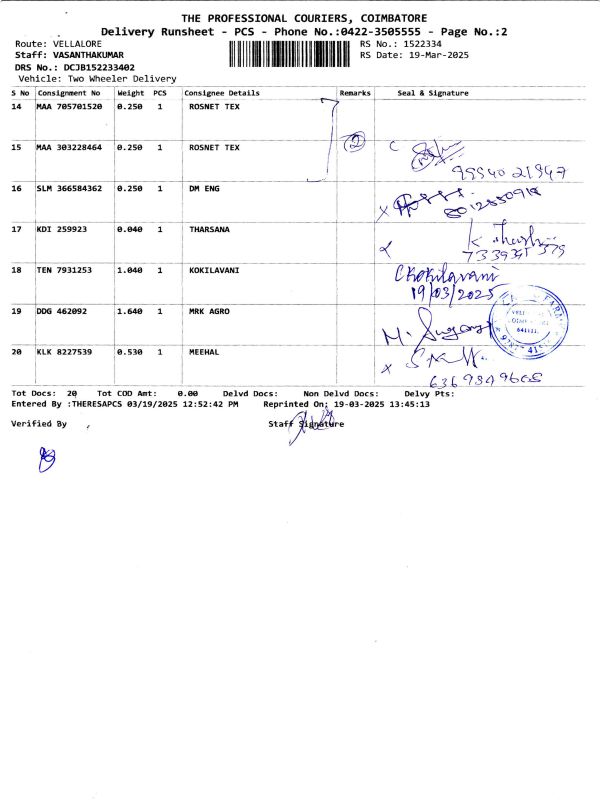 THE PROFESSIONAL COURIERS, COIMBATORE
Delivery Runsheet - PCS - Phone No.:0422-3505555 - Page No.:2
Route: VELLALORE RS No.: 1522334
Staff: VASANTHAKUMAR RS Date: 19-Mar-2025
DRS No.: DCJB152233402
Vehicle: Two Wheeler Delivery
S No Consignment No Weight PCS Consignee Details Remarks Seal & Signature
14 MAA 705701520 0.250 1 ROSNET TEX
15 MAA 303228464 0.250 1 ROSNET TEX 2
16 SLM 366584362 0.250 1 DM ENG
17 KDI 259923 0.040 1 THARSANA
18 TEN 7931253 1.040 1 KOKILAVANI C Kokilavani
19/03/2025
19 DDG 462092 1.640 1 MRK AGRO
20 KLK 8227539 0.530 1 MEEHAL
Tot Docs: 20 Tot COD Amt: 0.00 Delvd Docs: Non Delvd Docs: Delvy Pts:
Entered By :THERESAPCS 03/19/2025 12:52:42 PM Reprinted On: 19-03-2025 13:45:13
Verified By Staff Signature